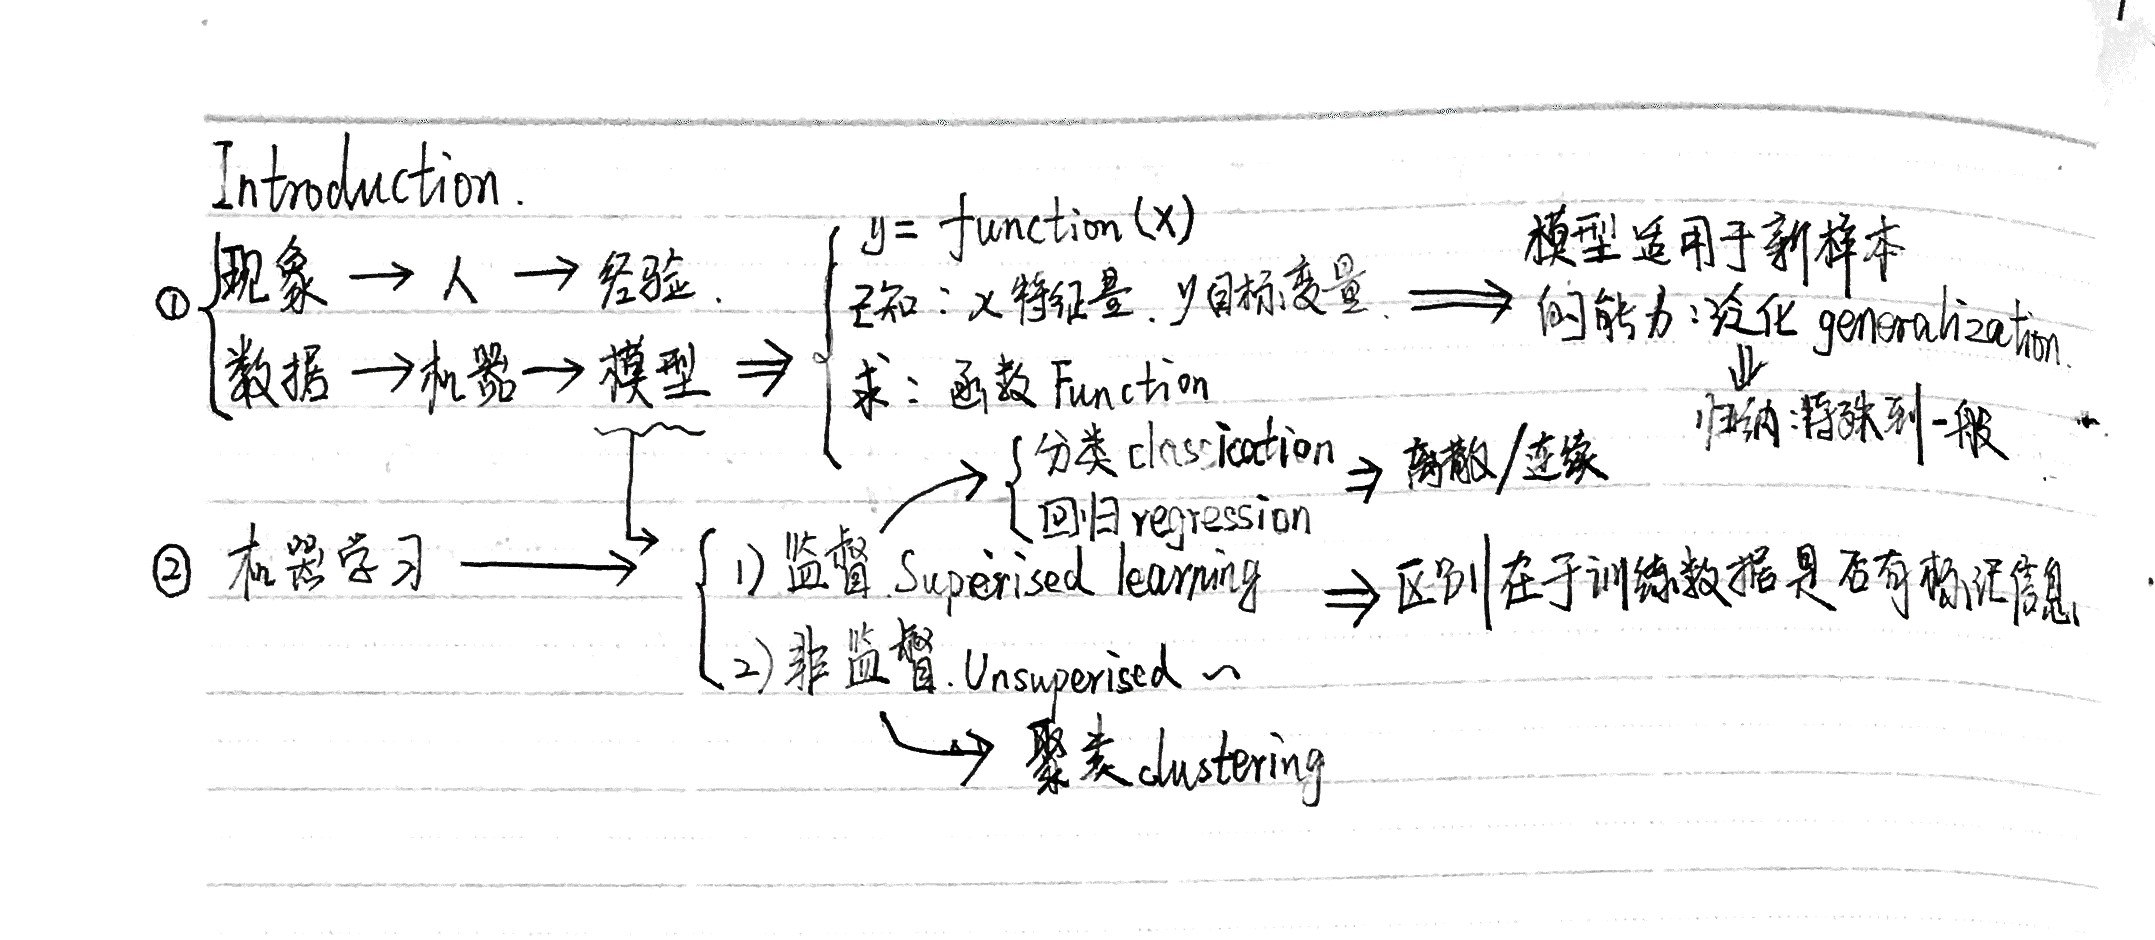 Introduction.
① 现象 → 人 → 经验.
数据 → 机器 → 模型 ⇒
y = function(x)
已知: x特征量. y目标变量. ⇒
求: 函数 Function
模型适用于新样本
的能力: 泛化 generalization.
⇓
归纳: 特殊到一般
分类 classication ⇒ 离散/连续
回归 regression
② 机器学习 →
1) 监督. Superised learning ⇒ 区别在于训练数据是否有标记信息.
2) 非监督. Unsuperised ~
→ 聚类 clustering